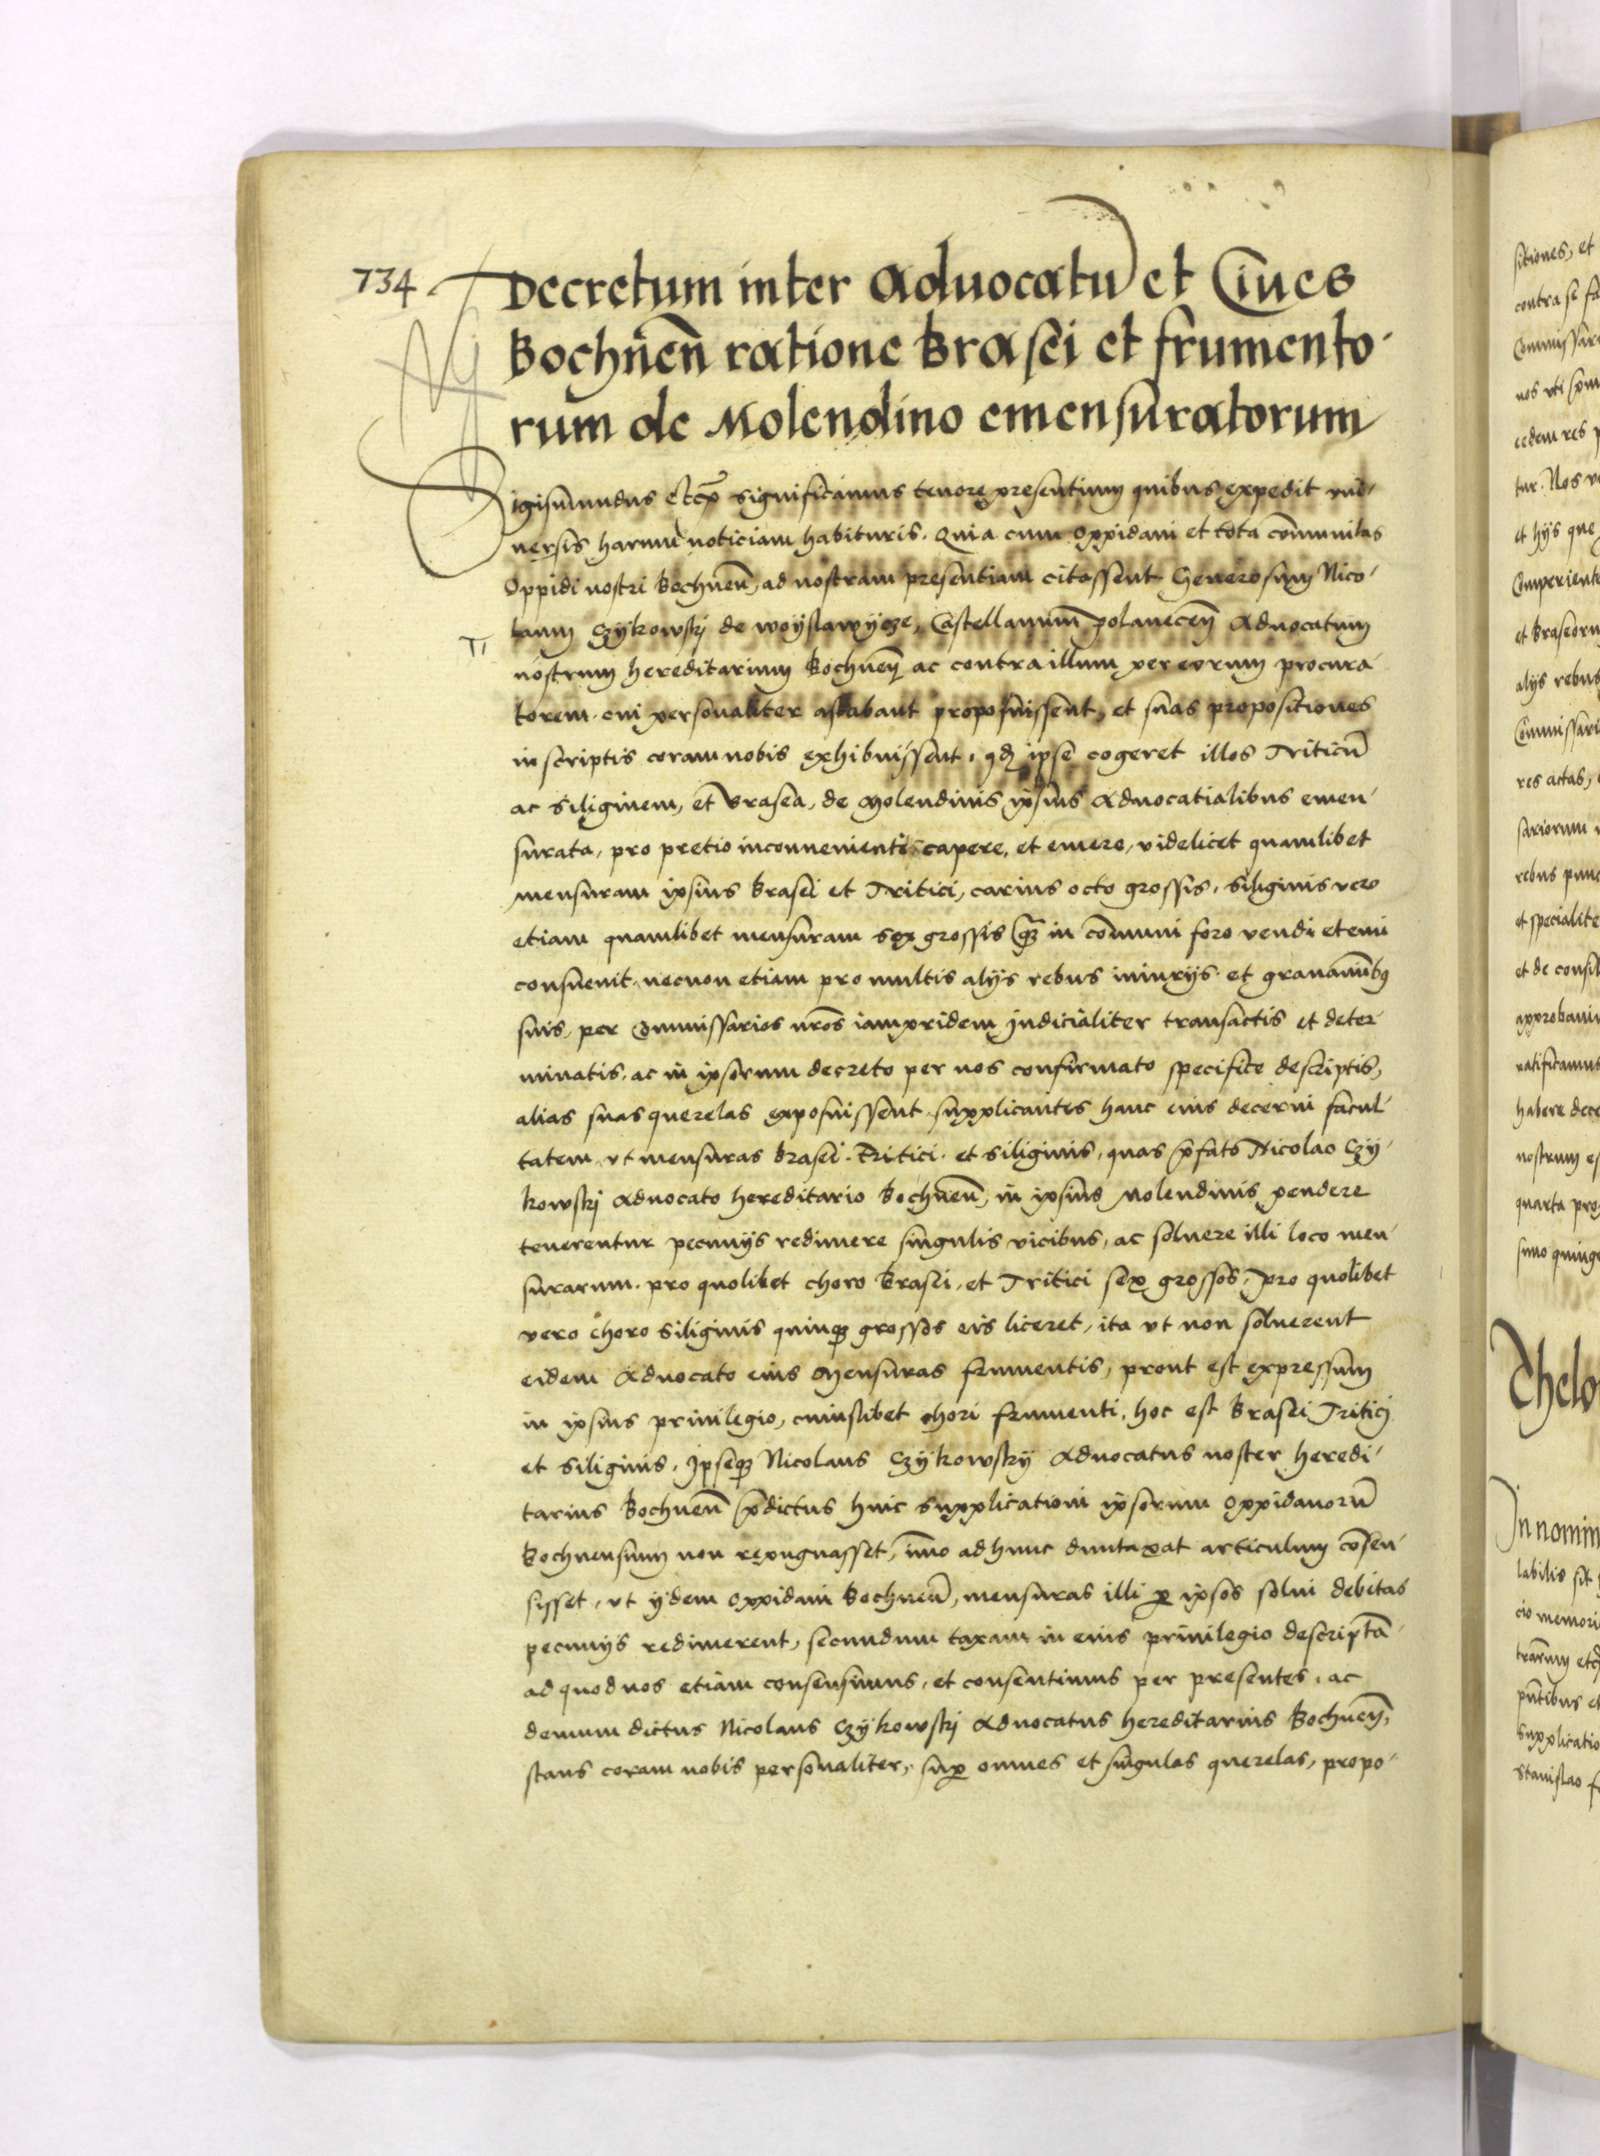 734
Decretum inter Aduocatū et Ciues
Bochn̄en̄ ratione Brasei et frumento-
rum de Molendino emensuratorum
Sigismundus etc̃ significamus tenore presentium quibus expedit vni-
uersis harum noticiam habituris. Quia cum Oppidani et tota com̄unitas
Oppidi nostri Bochnen̄, ad nostram presentiam citassent Generosum Nico-
laum Czÿkowskj de woÿslawÿcze, Castellanum polanecen̄ Aduocatum
nostrum hereditarium Bochnen̄ ac contra illum per eorum procura-
torem cui personaliter astabant proposuissent, et suas propositiones
in scriptis coram nobis exhibuissent, qđ ipse cogeret illos Triticū
ac Siliginem, et brasea, de Molendinis ipsius Aduocatialibus emen-
surata, pro pretio inconuenienti capere, et emere, videlicet quamlibet
mensuram ipsius Brasei et Tritici, carius octo grossis, Siliginis vero
etiam quamlibet mensuram sex grossis q̃ in com̄uni foro vendi et emi
consueuit, necnon etiam pro multis alÿs rebus iniurÿs et grauamībꝫ
suis, per Commissarios nr̄os iampridem Judicialiter transactis et deter-
minatis, ac in ipsorum decreto per nos confirmato specifice descriptis,
alias suas querelas exposuissent supplicantes hanc eius decerni facul-
tatem, vt mensuras brasei Tritici et Siliginis, quas p̄fato Nicolao Czÿ-
kowskj Aduocato hereditario Bochnen̄, in ipsius Molendinis pendere
tenerentur pecunÿs redimere singulis vicibus, ac soluere illi loco men-
surarum pro quolibet choro Brasei, et Tritici sex grossos, Pro quolibet
vero choro Siliginis quinqꝫ grossos eis liceret, ita vt non soluerent
eidem Aduocato eius Mensuras frumentis, prout est expressum
in ipsius priuilegio, cuiuslibet chori frumenti, hoc est Brasei Triticj
et Siliginis. Ipseqꝫ Nicolaus Czÿkowskÿ Aduocatus noster heredi-
tarius Bochnen̄ p̄dictus huic supplicationi ipsorum Oppidanorū
Bochnensium non repugnasset, im̄o ad hunc duntaxat articulum cōsen-
sisset, vt ÿdem Oppidani Bochnen̄, mensuras illi ꝑ ipsos solui debitas
pecunÿs redimerent, secundum taxam in eius priuilegio descriptā
ad quod nos etiam consensimus, et consentimus per presentes, ac
demum dictus Nicolaus Czÿkowskj Aduocatus hereditarius Bochnen̄,
stans coram nobis personaliter, suꝑ omnes et singulas querelas, propo-
sitiones, et
contra se fa
Commissar
nos vti
eedem res p
tur. Nos v
et hÿs que
Comperiente
et Braseoru
alÿs rebus
Commissari
res actas,
sariorum
rebus pun
et specialite
et de consil
approbaui
ratificamus
habere dece
nostrum es
quarta pro
simo quinge
Thelo
In nomin
labilis sit
cio memori
trarum etc
pn̄tibus et
supplicatio
Stanislao f